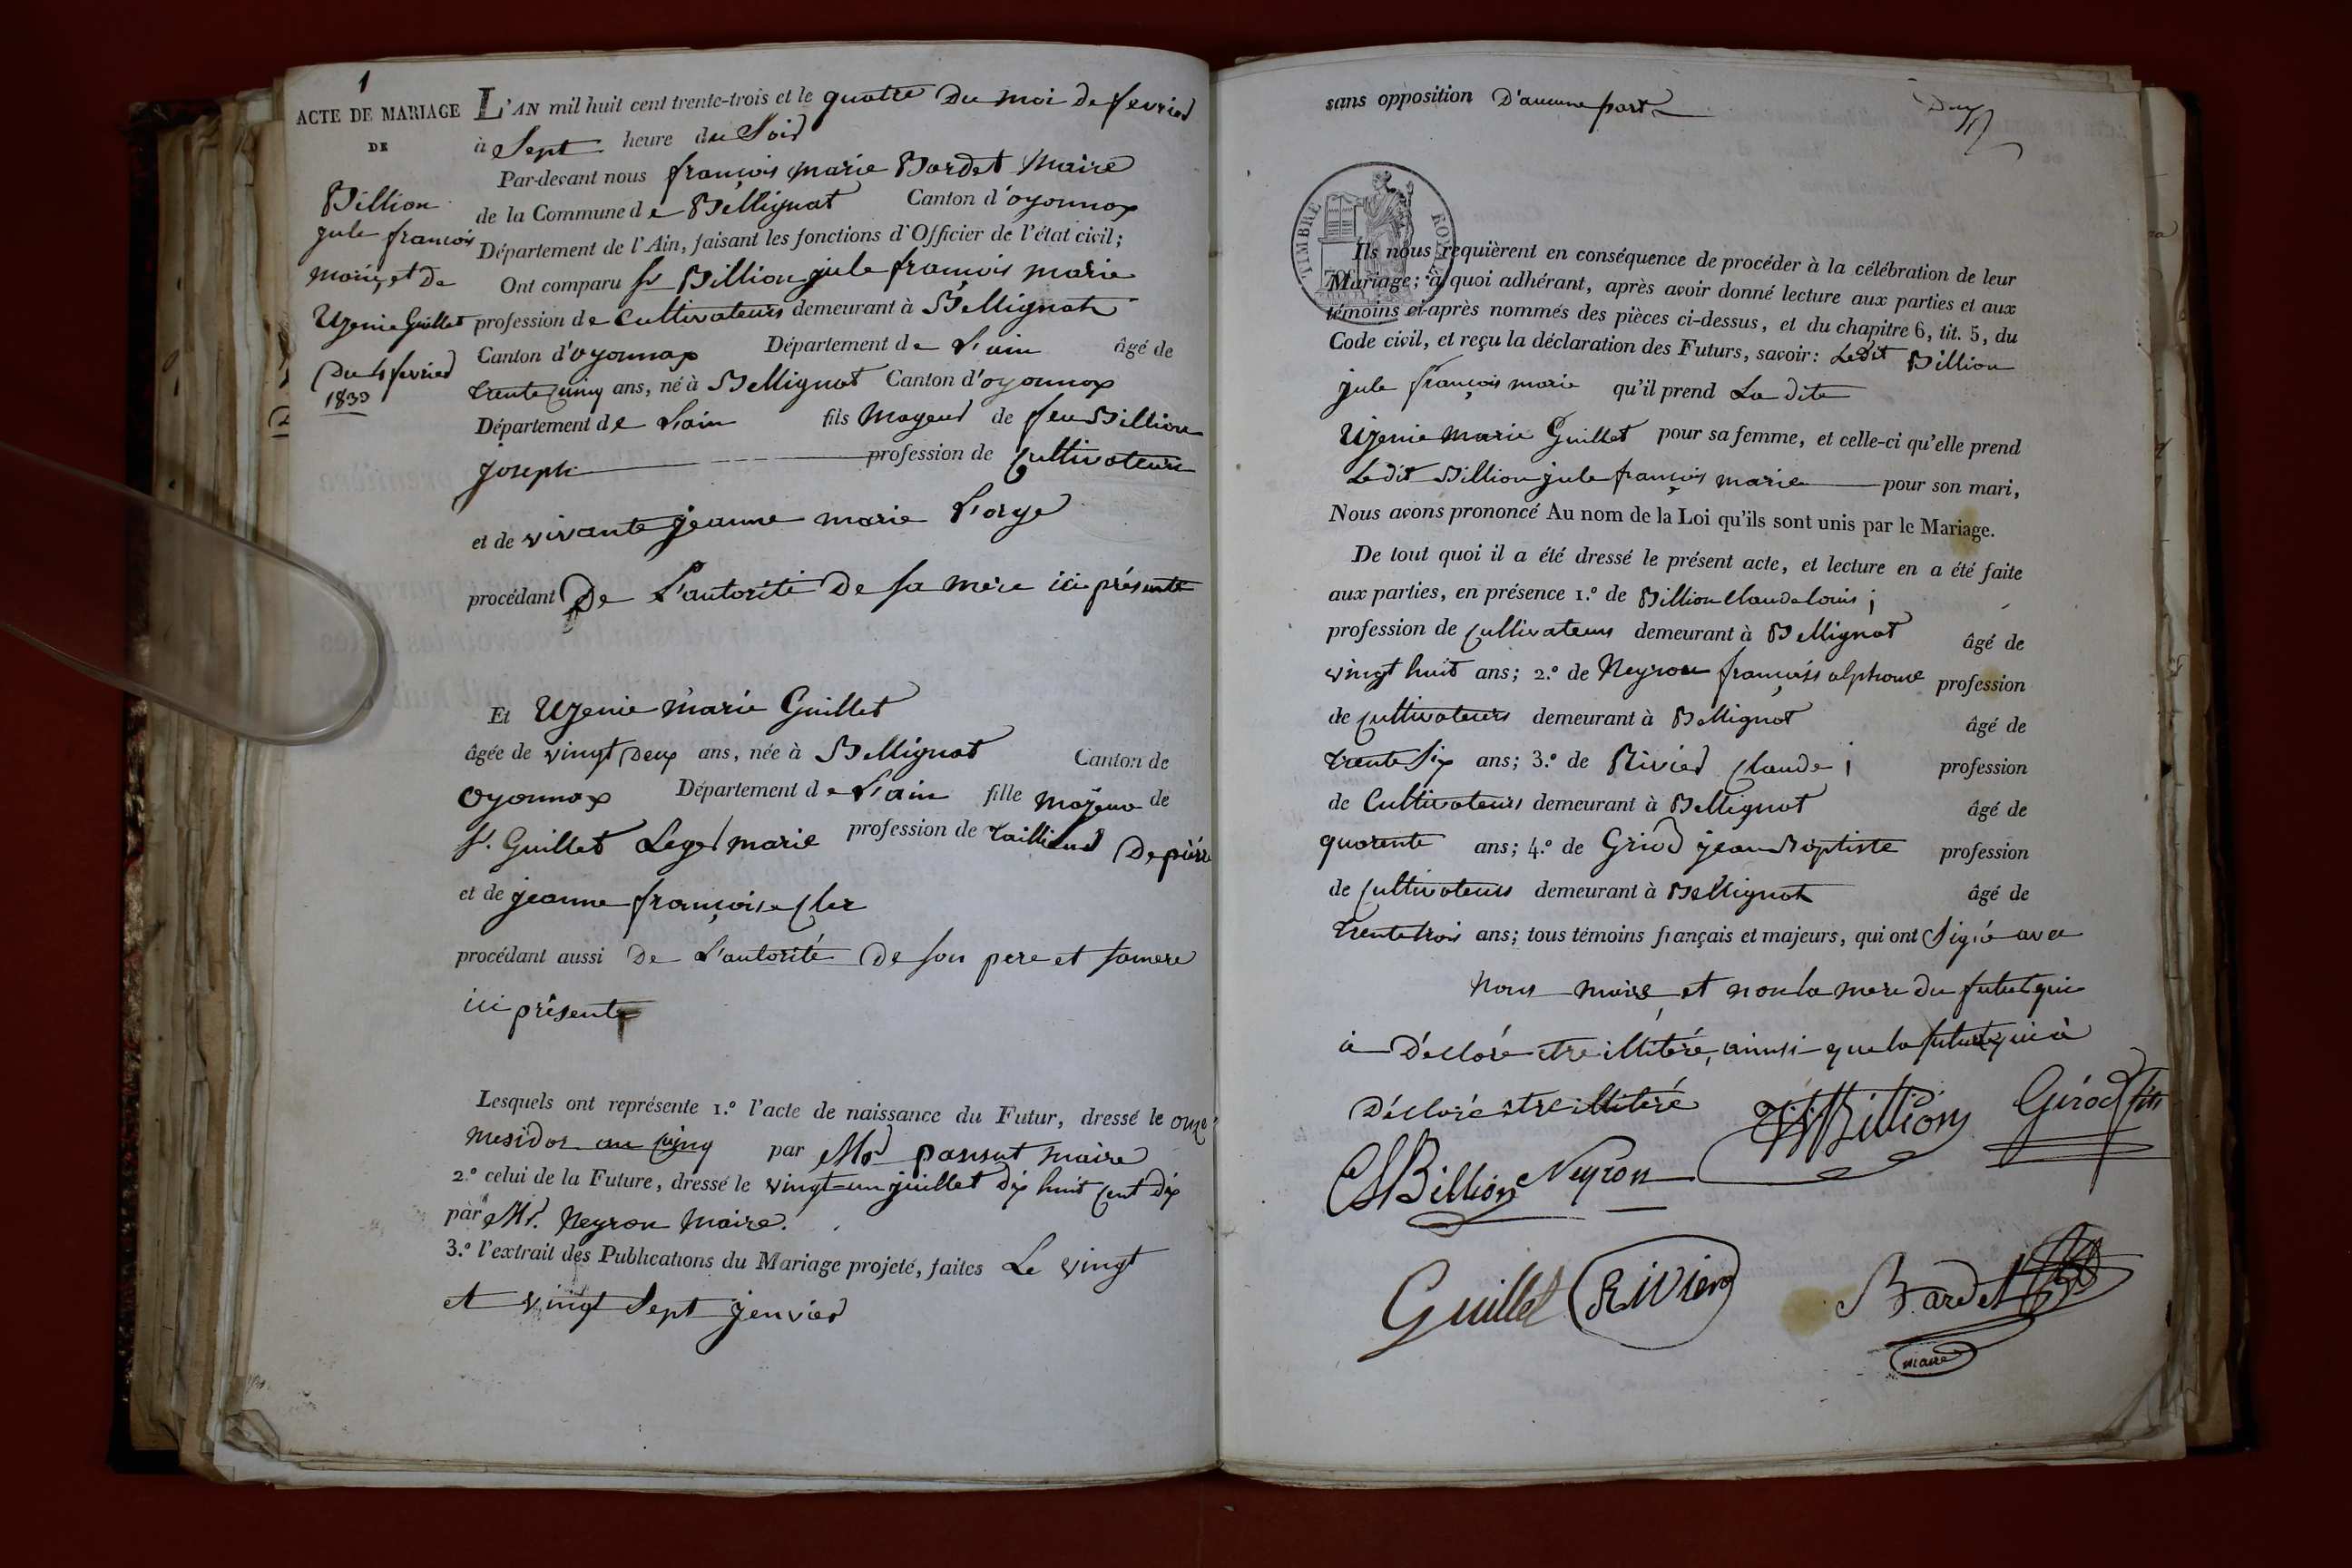 1
ACTE DE MARIAGE
DE
Billion
jule francois
marie, et de
Ugenie Guillet
Du 4 fevrier
1833
L'AN mil huit cent trente-trois et le quatre Du moi De fevrier
à Sept heure du Soir
Par-devant nous françois marie Bardet Maire
de la Commune de Bellignat Canton d'oyonnax
Département de l'Ain, faisant les fonctions d'Officier de l'état civil;
Ont comparu sr Billion jule françois marie
profession de Cultivateurs demeurant à Bellignat
Canton d'oyonnax Département de L'ain âgé de
trente cinq ans, né à Bellignat Canton d'oyonnax
Département de L'ain fils Mayeur de feu Billion
Joseph profession de Cultivateur
et de vivante jeanne marie L'orge
procédant De L'autorité De sa mère ici présente
Et Ugenie Marie Guillet
âgée de vingt Deux ans, née à Bellignat Canton de
Oyonnax Département de L'ain fille mayeur de
sr. Guillet Leger marie profession de tailleur De pierre
et de jeanne françoise Cler
procédant aussi De L'autorité De son pere et samere
ici présente
Lesquels ont représente 1.° l'acte de naissance du Futur, dressé le onze
Mesidor an Cinq par Mr pansut maire
2.° celui de la Future, dressé le vingt-un juillet dix huit Cent dix
par Mr. Neyron Maire.
3.° l'extrait des Publications du Mariage projeté, faites Le vingt
et vingt Sept jenvier
sans opposition D'aucune part
TIMBRE ROYAL
Ils nous requièrent en conséquence de procéder à la célébration de leur
Mariage; à quoi adhérant, après avoir donné lecture aux parties et aux
témoins ci-après nommés des pièces ci-dessus, et du chapitre 6, tit. 5, du
Code civil, et reçu la déclaration des Futurs, savoir: Ledit Billion
jule françois marie qu'il prend La dite
Ugenie Marie Guillet pour sa femme, et celle-ci qu'elle prend
Le dit Billion jule françois marie pour son mari,
Nous avons prononcé Au nom de la Loi qu'ils sont unis par le Mariage.
De tout quoi il a été dressé le présent acte, et lecture en a été faite
aux parties, en présence 1.° de Billion Claude Louis;
profession de Cultivateurs demeurant à Bellignat âgé de
vingt huit ans; 2.° de Neyron françois alphonse profession
de Cultivateurs demeurant à Bellignat âgé de
trente Six ans; 3.° de Rivier Claude; profession
de Cultivateurs demeurant à Bellignat âgé de
quarente ans; 4.° de Girod jean Baptiste profession
de Cultivateurs demeurant à Bellignat âgé de
trente trois ans; tous témoins français et majeurs, qui ont Signé avec
Nous maire et non la mere du futur qui
a Décloré etre illitéré, ainsi que la future qui à
Décloré etre illitéré
Billion Girod fils
CLBillion Neyron
Guillet Rivier Bardet
maire